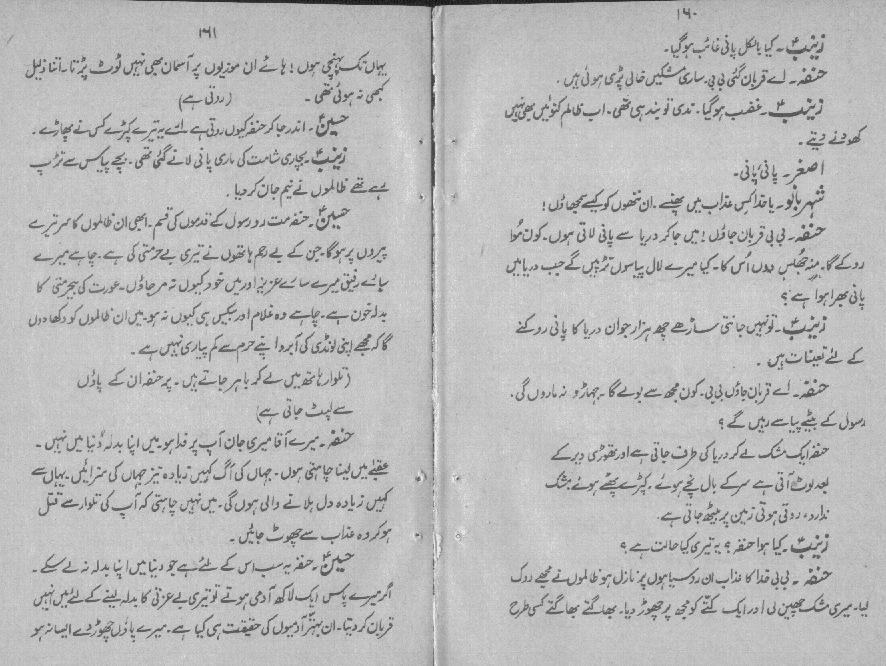 ۱۶۰
زینبؑ۔ کیا بالکل پانی غائب ہو گیا۔
حنفہ۔ اے قربان گئی بی بی۔ ساری مشکیں خالی پڑی ہوئی ہیں۔
زینبؑ۔ غضب ہو گیا۔ ندی تو بند ہی تھی۔ اب ظالم کنوئیں بھی نہیں
کھودنے دیتے۔
اصغر۔ پانی، پانی۔
شہر بانو۔ یا خدا کس عذاب میں پھنسے۔ ان ننھوں کو کیسے سمجھاؤں!
حنفہ۔ بی بی قربان جاؤں! میں جا کر دریا سے پانی لاتی ہوں۔ کون مُوا
روکے گا۔ منہ جھلس دوں اُس کا۔ کیا میرے لال پیاسوں تڑپیں گے جب دریا میں
پانی بھرا ہوا ہے؟
زینبؑ۔ تو نہیں جانتی ساڑھے چھ ہزار جوان دریا کا پانی روکنے
کے لئے تعینات ہیں۔
حنفہ۔ اے قربان جاؤں بی بی۔ کون مجھ سے بولے گا۔ جھاڑو نہ ماروں گی۔
رسول کے بیٹے پیاسے رہیں گے؟
حنفہ ایک مشک لے کر دریا کی طرف جاتی ہے اور تھوڑی دیر کے
بعد لوٹ آتی ہے سر کے بال نچے ہوئے۔ کپڑے پھٹے ہوئے مشک
ندارد، روتی ہوئی زمین پر بیٹھ جاتی ہے۔
زینبؑ۔ کیا ہوا حنفہ؟ یہ تیری کیا حالت ہے؟
حنفہ۔ بی بی خدا کا عذاب ان روسیاہوں پر نازل ہو ظالموں نے مجھے روک
لیا۔ میری مشک چھین لی اور ایک کتّے کو مجھ پر چھوڑ دیا۔ بھاگتے بھاگتے کسی طرح
۱۶۱
یہاں تک پہنچی ہوں! ہائے ان موذیوں پر آسمان بھی نہیں ٹوٹ پڑتا۔ اتنا ذلیل
کبھی نہ ہوئی تھی۔ (روتی ہے)
حسینؑ۔ اندر جا کر حنفہ کیوں روتی ہے ارے یہ تیرے کپڑے کس نے پھاڑے۔
زینبؑ۔ بچاری شامت کی ماری پانی لانے گئی تھی۔ بچے پیاس سے تڑپ
رہے تھے ظالموں نے نیم جان کر دیا۔
حسینؑ۔ حنفہ مت رو رسول کے قدموں کی قسم۔ ابھی ان ظالموں کا سر تیرے
پیروں پر ہو گا۔ جن کے بے رحم ہاتھوں نے تیری بے حرمتی کی ہے۔ چاہے میرے
سارے رفیق میرے سارے عزیز اور میں خود کیوں نہ مر جاؤں۔ عورت کی بیحرمتی کا
بدلہ خون ہے۔ چاہے وہ غلام اور بیکس ہی کیوں نہ ہو۔ میں ان ظالموں کو دکھا دوں
گا کہ مجھے اپنی لونڈی کی آبرو اپنے حرم سے کم پیاری نہیں ہے۔
(تلوار ہاتھ میں لے کر باہر جاتے ہیں۔ پر حنفہ ان کے پاؤں
سے لپٹ جاتی ہے)
حنفہ۔ میرے آقا میری جان آپ پر فدا ہو۔ میں اپنا بدلہ دُنیا میں نہیں۔
عقبے میں لینا چاہتی ہوں۔ جہاں کی آگ کہیں زیادہ تیز جہاں کی سزائیں۔ یہاں سے
کہیں زیادہ دل ہلانے والی ہوں گی۔ میں نہیں چاہتی کہ آپ کی تلوار سے قتل
ہو کر وہ عذاب سے چھوٹ جائیں۔
حسینؑ۔ حنفہ یہ سب اس کے لئے ہے جو دنیا میں اپنا بدلہ نہ لے سکے۔
اگر میرے پاس ایک لاکھ آدمی ہوتے تو تیری بے عزتی کا بدلہ لینے کے لئے میں نہیں
قربان کر دیتا۔ ان بہتّر آدمیوں کی حقیقت ہی کیا ہے۔ میرے پاؤں چھوڑ دے ایسا نہ ہو